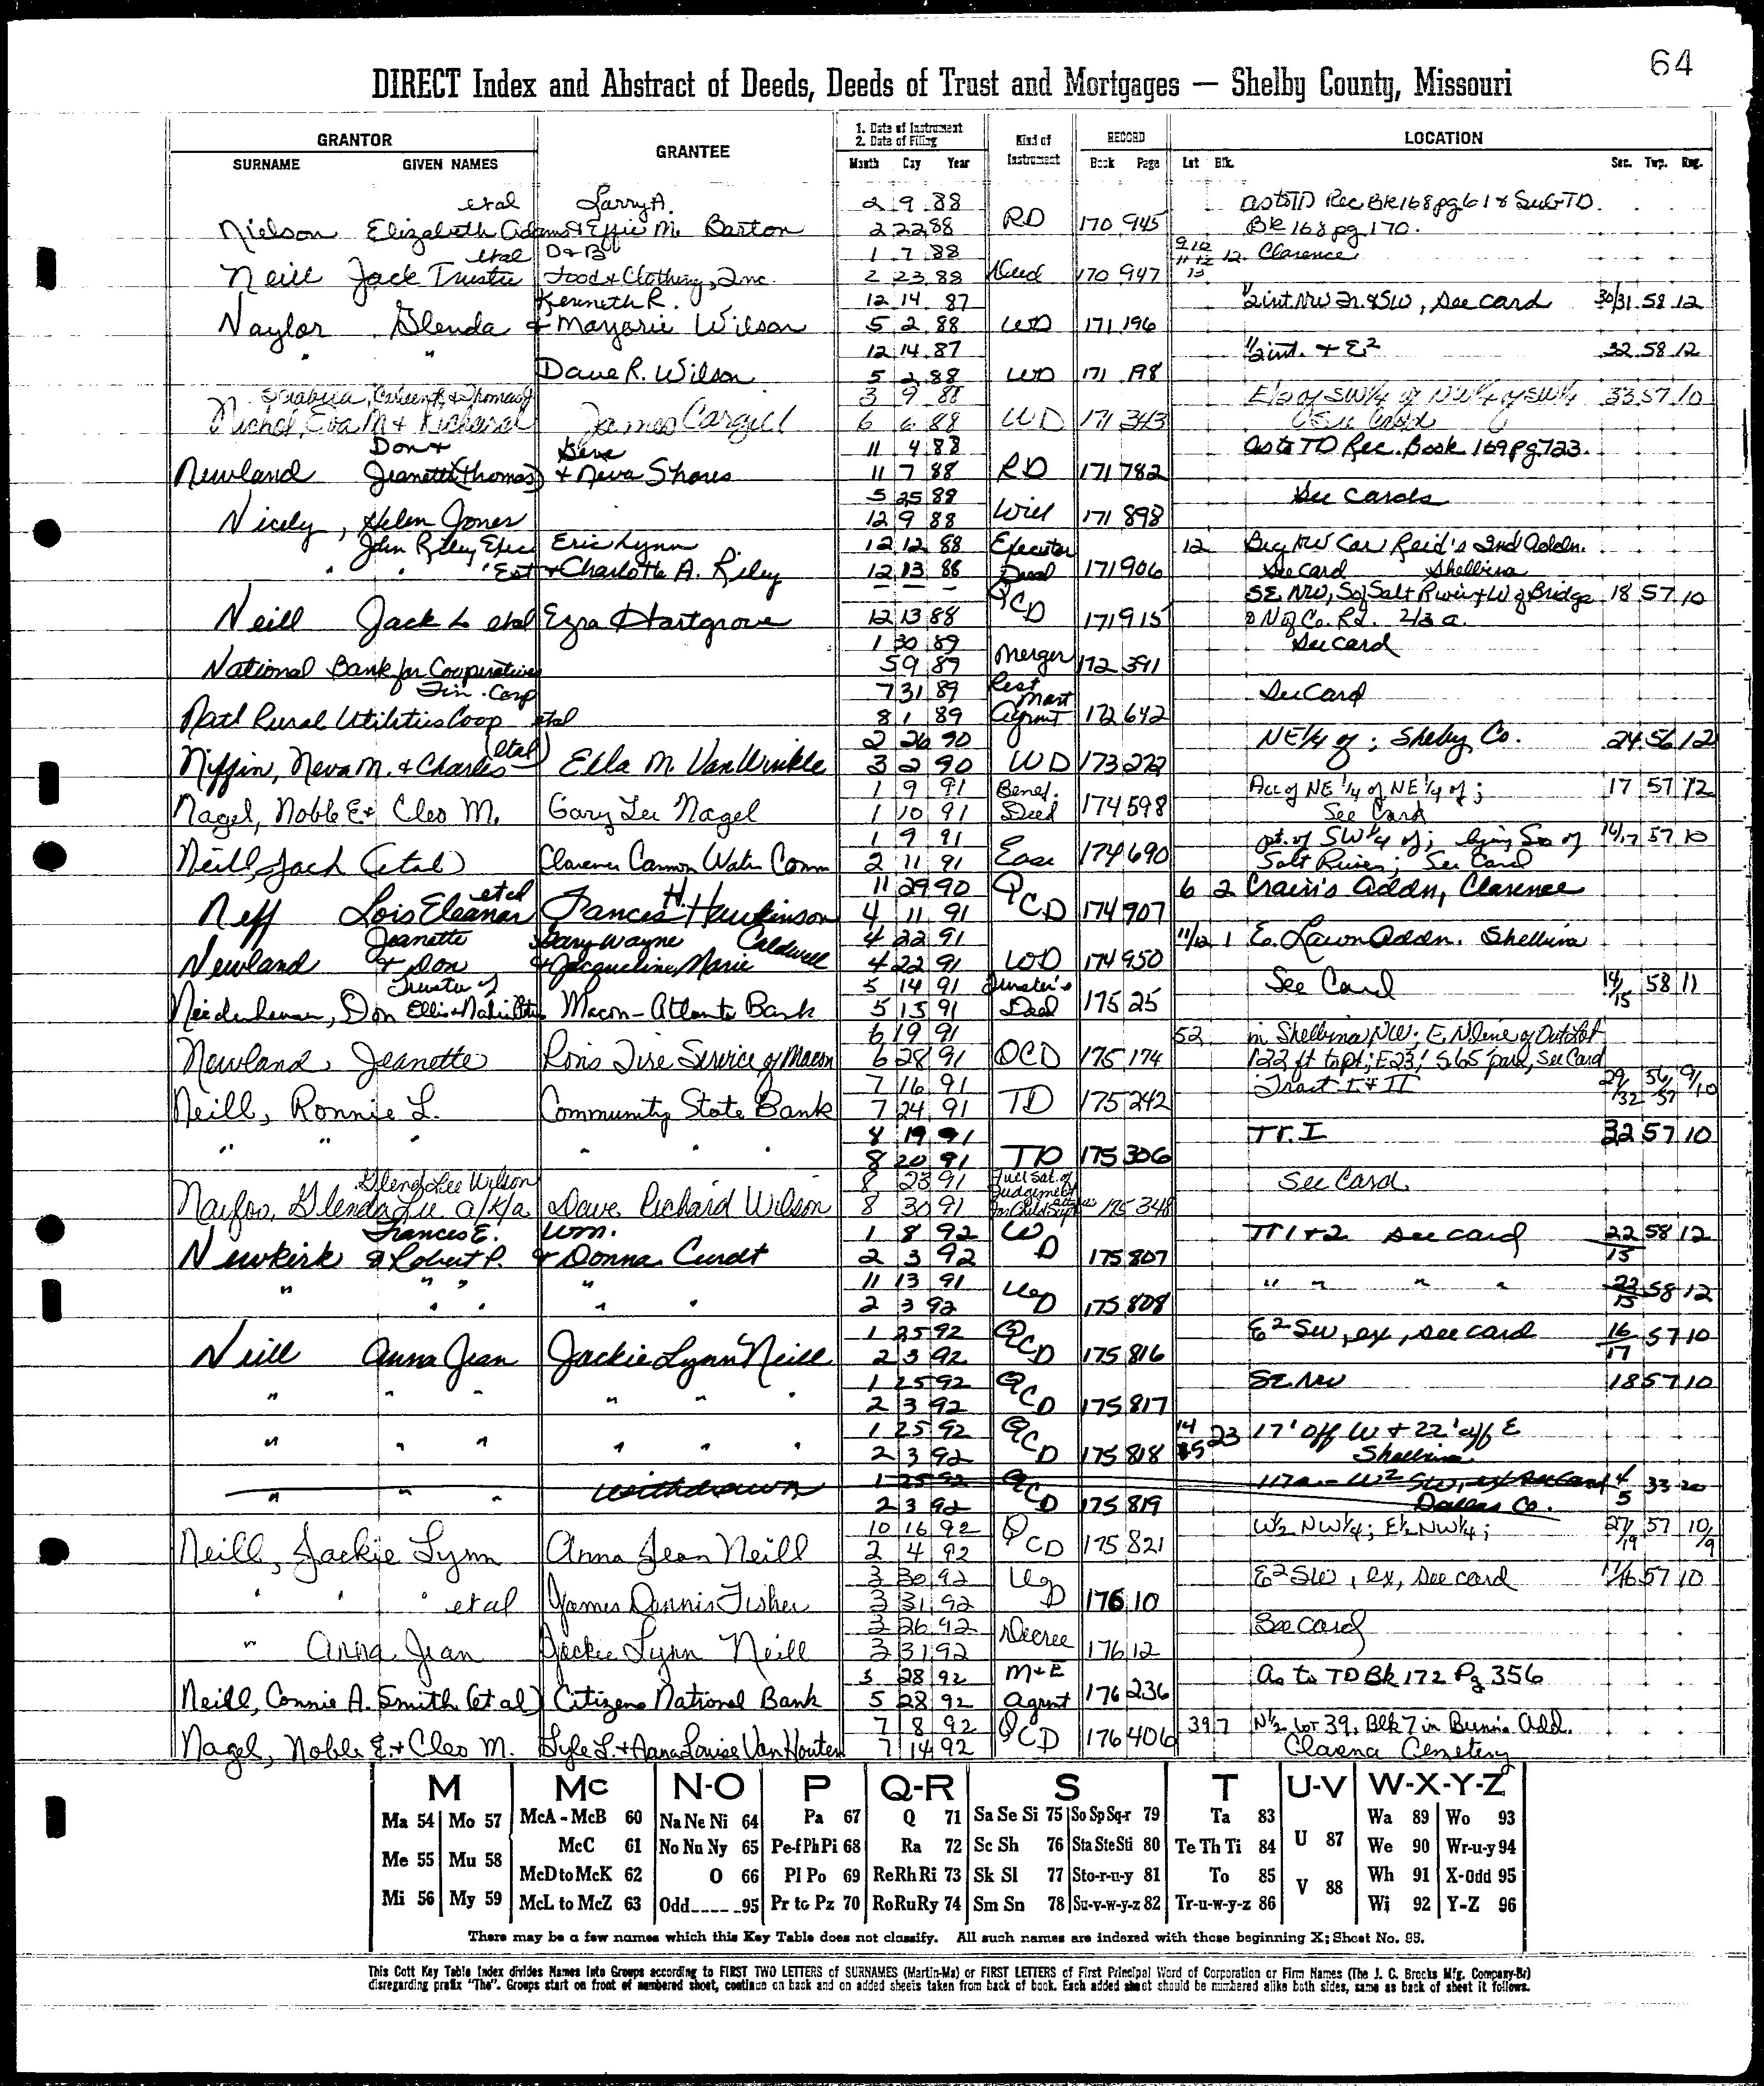 64
DIRECT Index and Abstract of Deeds, Deeds of Trust and Mortgages — Shelby County, Missouri
GRANTOR GRANTEE 1. Date of Instrument 2. Date of Filing Kind of Instrument RECORD LOCATION
SURNAME GIVEN NAMES Month Day Year Book Page Lot Blk. Sec. Twp. Rng.
etal Larry A. 2 9 88 as to TD Rec Bk 168 pg 618 Sub TD.
Nielson Elizabeth Adams & Effie M. Barton 2 22 88 RD 170 945 Bk 168 pg 170.
etal D & B 1 7 88 9 10 11 12 12 Clarence
Neill Jack Trustee Food & Clothing, Inc. 2 23 88 Deed 170 947 13
Kenneth R. 12 14 87 1/2 int NW & SW, See card 30/31 58 12
Naylor Glenda & Marjorie Wilson 5 2 88 WD 171 196
" " 12 14 87 1/2 int. + E2 32 58 12
Dave R. Wilson 5 2 88 WD 171 198
3 9 88 E1/2 of SW1/4 of NW1/4 of SW1/4 33 57 10
Nichol, Eva M & Richard James Cargill 6 6 88 WD 171 343 See Card
Don & Gene 11 4 88 as to TD Rec. Book 169 pg 723.
Newland Jeanette (Thomas) & Neva Shores 11 7 88 RD 171 782
5 25 88 See Cards
Nicely, Helen Jones 12 9 88 Will 171 898
John Riley Exec Eric Lynn 12 12 88 Executor 12 Beg NW Cor Reid's 2nd Addn.
" " " Est & Charlotte A. Riley 12 13 88 Deed 171 906 See Card Shelbina
— — — SE NW, So of Salt River & W of Bridge 18 57 10
Neill Jack L etal Ezra Hartgrove 12 13 88 QCD 171 915 & N of Co. Rd. 2/3 a.
1 30 89 See card
National Bank for Cooperatives 5 9 89 Merger 172 391
Fin. Corp 7 31 89 Rest Mort See Card
Natl Rural Utilities Coop etal 8 1 89 Agrmt 172 642
(etal) 2 26 90 NE1/4 of; Shelby Co. 24 56 12
Niffin, Neva M. & Charles Ella M. VanWinkle 3 2 90 WD 173 222
1 9 91 Benef. All of NE 1/4 of NE 1/4 of; 17 57 12
Nagel, Noble E & Cleo M. Gary Lee Nagel 1 10 91 Deed 174 598 See Card
1 9 91 pt. of SW 1/4 of; lying So of 16/17 57 10
Neill, Jack (etal) Clarence Cannon Water Comm 2 11 91 Ease 174 690 Salt River; See Card
etal 11 29 90 6 2 Crain's Addn, Clarence
Neff Lois Eleanor Frances H. Hawkinson 4 11 91 QCD 174 907
Jeanette Gary Wayne Caldwell 4 22 91 11/12 1 E. Lawn Addn. Shelbina
Newland & Don & Jacqueline Marie 4 22 91 WD 174 950
Trustee of 5 14 91 Trustee's See Card 14/15 58 11
Don Macon-Atlanta Bank 5 15 91 Deed 175 25
6 19 91 52 in Shelbina, NW; E, N line of Out Lot
Newland, Jeanette Ron's Tire Service of Macon 6 28 91 QCD 175 174 122 ft to pt; E 23', S 65' par, See Card
7 16 91 Tract I & II 29/32 56/57 9/10
Neill, Ronnie L. Community State Bank 7 24 91 TD 175 242
8 19 91 Tr. I 32 57 10
" " " " " " 8 20 91 TD 175 306
Glenda Lee Wilson 8 23 91 Full Sat. of Judgement See Card
Glenda Lee a/k/a Dave Richard Wilson 8 30 91 for Child Sup 175 348
Frances E. Wm. 1 8 92 Tr 1 + 2 see card 22/15 58 12
Newkirk & Robert P. & Donna Curdt 2 3 92 WD 175 807
11 13 91 " " " " 22/15 58 12
" " " " " 2 3 92 WD 175 808
1 25 92 E2 SW, ex, see card 16/17 57 10
Neill Anna Jean Jackie Lynn Neill 2 3 92 QCD 175 816
1 25 92 SE NW 18 57 10
" " " " " " 2 3 92 QCD 175 817
1 25 92 14 23 17' off W + 22' off E
" " " " " " 2 3 92 QCD 175 818 15 Shelbina
1 25 92 117a - W2 SW, ex See Card 4/5 33 20
" " " withdrawn 2 3 92 QCD 175 819 Dallas Co.
10 16 92 W1/2 NW1/4; E1/2 NW1/4; 27/19 57 10/9
Neill, Jackie Lynn Anna Jean Neill 2 4 92 QCD 175 821
3 30 92 E2 SW, ex, See card 17/16 57 10
" " " etal James Dennis Fisher 3 31 92 WD 176 10
3 26 92 See Card
" Anna Jean Jackie Lynn Neill 3 31 92 Decree 176 12
5 28 92 M & E As to TD Bk 172 Pg 356
Neill, Connie A. Smith (et al) Citizens National Bank 5 28 92 Agrmt 176 236
7 8 92 39 7 N1/2 Lot 39, Blk 7 in Add.
Nagel, Noble E. & Cleo M. Lyle L. & Anna Louise Van Houten 7 14 92 QCD 176 406 Cemetery
M Mc N-O P Q-R S T U-V W-X-Y-Z
Ma 54 Mo 57 McA - McB 60 Na Ne Ni 64 Pa 67 Q 71 Sa Se Si 75 So Sp Sq-r 79 Ta 83 Wa 89 Wo 93
McC 61 No Nu Ny 65 Pe-f Ph Pi 68 Ra 72 Sc Sh 76 Sta Ste Sti 80 Te Th Ti 84 U 87 We 90 Wr-u-y 94
Me 55 Mu 58 McD to McK 62 O 66 Pl Po 69 Re Rh Ri 73 Sk Sl 77 Sto-r-u-y 81 To 85 V 88 Wh 91 X-Odd 95
Mi 56 My 59 McL to McZ 63 Odd 95 Pr to Pz 70 Ro Ru Ry 74 Sm Sn 78 Su-v-w-y-z 82 Tr-u-w-y-z 86 Wi 92 Y-Z 96
There may be a few names which this Key Table does not classify. All such names are indexed with those beginning X; Sheet No. 95.
This Cott Key Table Index divides Names into Groups according to FIRST TWO LETTERS of SURNAMES (Martin-Ma) or FIRST LETTERS of First Principal Word of Corporation or Firm Names (The J. C. Brocks Mfg. Company-Br)
disregarding prefix "The". Groups start on front of numbered sheet, continue on back and on added sheets taken from back of book. Each added sheet should be numbered alike both sides, same as back of sheet it follows.